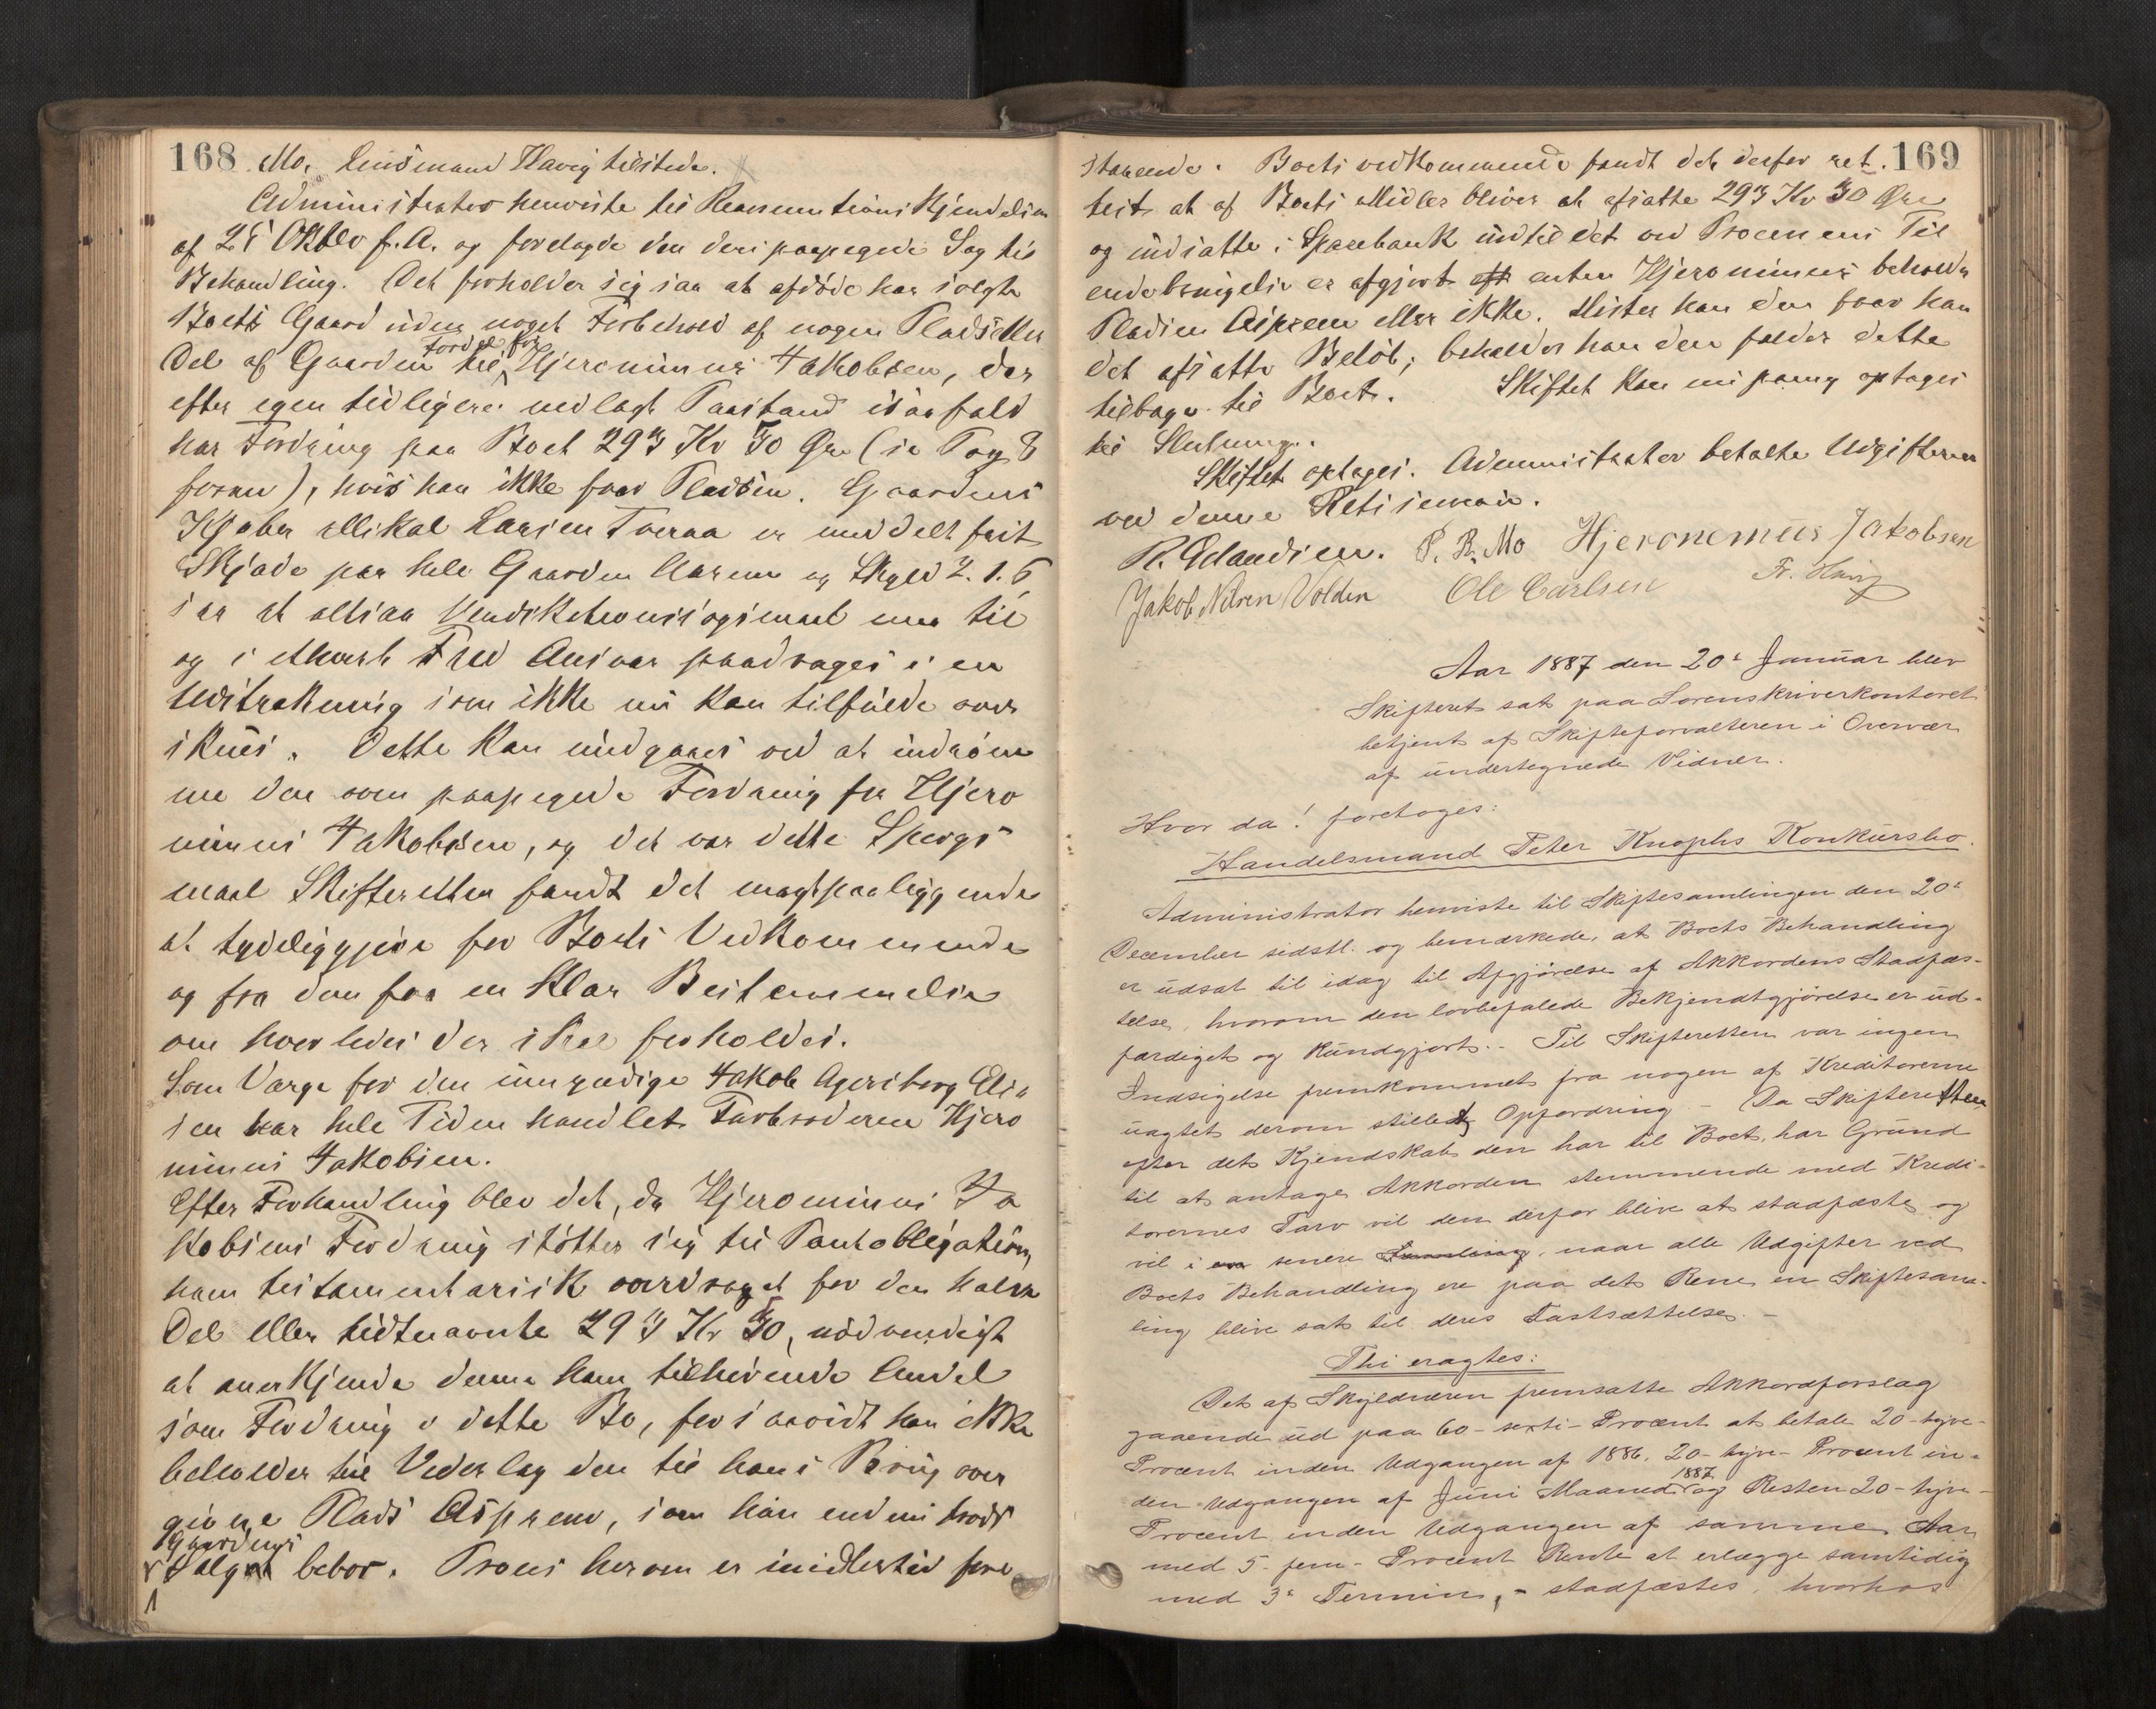 168 Mo, Lensmand Havig tilstede.
Administrator henviste til Reassumtions Kjendelsen
af 25 Oktbr f. A. og foretagde den deri paapegede Sag til
Behandling. Det forholder sig saa at afdöde har solgt
Boets Gaard uden noget Forbehold af nogen Plads eller
Del af Gaarden til Fordel for Hjeronimus Jakobsen, der
efter egen tidligere nedlagt Paastand isaafald
har Fordring paa Boet 293 Kr 50 Öre (se Pag 8
foran), hvis han ikke faar Pladsen. Gaardens
Kjøber Mikal Larsen Tveraa er meddelt frit
Skjøde paa hele Gaarden og Skyld 2. 1. 6
saa at altsaa
og i Ansvar paadrages i en
Udstrækning som ikke nu kan tilfulde over
skues. Dette kan undgaaes ved at indröm
me den oven paapegede Fordring fra Hjero
nimus Jakobsen, og det var dette Spörgs
maal Skifteretten fandt det magtpaaliggende
at tydeliggjöre for Boets Vedkommende
og fra dem faa en klar Bestemmelse
om hvorledes der skal forholdes.
Som Værge for den umyndige Jakob Elia
sen har hele Tiden handlet Farbroderen Hjero
nimus Jakobsen.
Efter Forhandling blev det, da Hjeronimus Ja
kobsens Fordring støtter sig til Pantobligation,
ham testamentarisk overdraget for den halve
Del eller tidtnævnte 293 Kr 50, nödvendigt
at anerkjende denne ham tilhörende Andel
som Fordring i dette Bo, forsaavidt han ikke
beholder til Vederlag den til hans Brug over
givne Plads Aspneen, som han endnu trods
Gaardens
Salget bebor. Proces herom er imidlertid fore
169
staaende. Boets vedkommende fandt det derfor ret
test at af Boets Midler bliver at afsætte 293 Kr 50 Öre
og indsætte i Sparebank indtil det ved Processens Til
endebringelse er afgjort enten Hjeronimus beholder
Pladsen Aspneen eller ikke. Mister han den faar han
det afsatte Belöb; beholder han den falder dette
tilbage til Boet. Skiftet kan nu paany optages
til Slutning.
Skiftet optages. Administrator betalte Udgifterne
ved denne Retssession.
R. Erlandsen. P. R. Mo Hjeronemus Jakobsen
Jakob Nilsen Volden Ole Carlsen Fr. Havig
Aar 1887 den 20de Januar blev
Skifteret sat paa Sorenskriverkontoret
betjent af Skifteforvalteren i Overvær
af undertegnede Vidner.
Hvor da! foretoges:
Handelsmand Peter Knophs Konkursbo.
Administrator henviste til Skiftesamlingen den 20de
December sidstl. og bemærkede, at Boets Behandling
er udsat til idag til Afgjörelse af Akkordens Stadfæs-
telse, hvorom den lovbefalede Bekjendtgjörelse er ud-
færdiget og kundgjort. - Til Skifteretten var ingen
Indsigelse fremkommet fra nogen af Kreditorerne
uagtet derom stillet Opfordring - Da Skifteretten
efter det Kjendskab den har til Boet, har Grund
til at antage Akkorden stemmende med Kredi-
torernes Tarv vil den derfor blive at stadfæste og
vil i en senere Samling, naar alle Udgifter ved
Boets Behandling ere paa det Rene en Skiftesam-
ling blive sat til deres Fastsættelse. -
Thi eragtes:
Det af Skyldneren fremsatte Akkordforslag
gaaende ud paa 60 - sexti - Procent at betale 20 - tyve -
Procent inden Udgangen af 1886, 20 - tyve - Procent in-
den Udgangen af Juni Maaned 1887 og Resten 20 - tyve -
Procent inden Udgangen af samme Aar
med 5 - fem - Procent Rente at erlægge samtidig
med 3de Termin, - stadfæstes, hvorhos